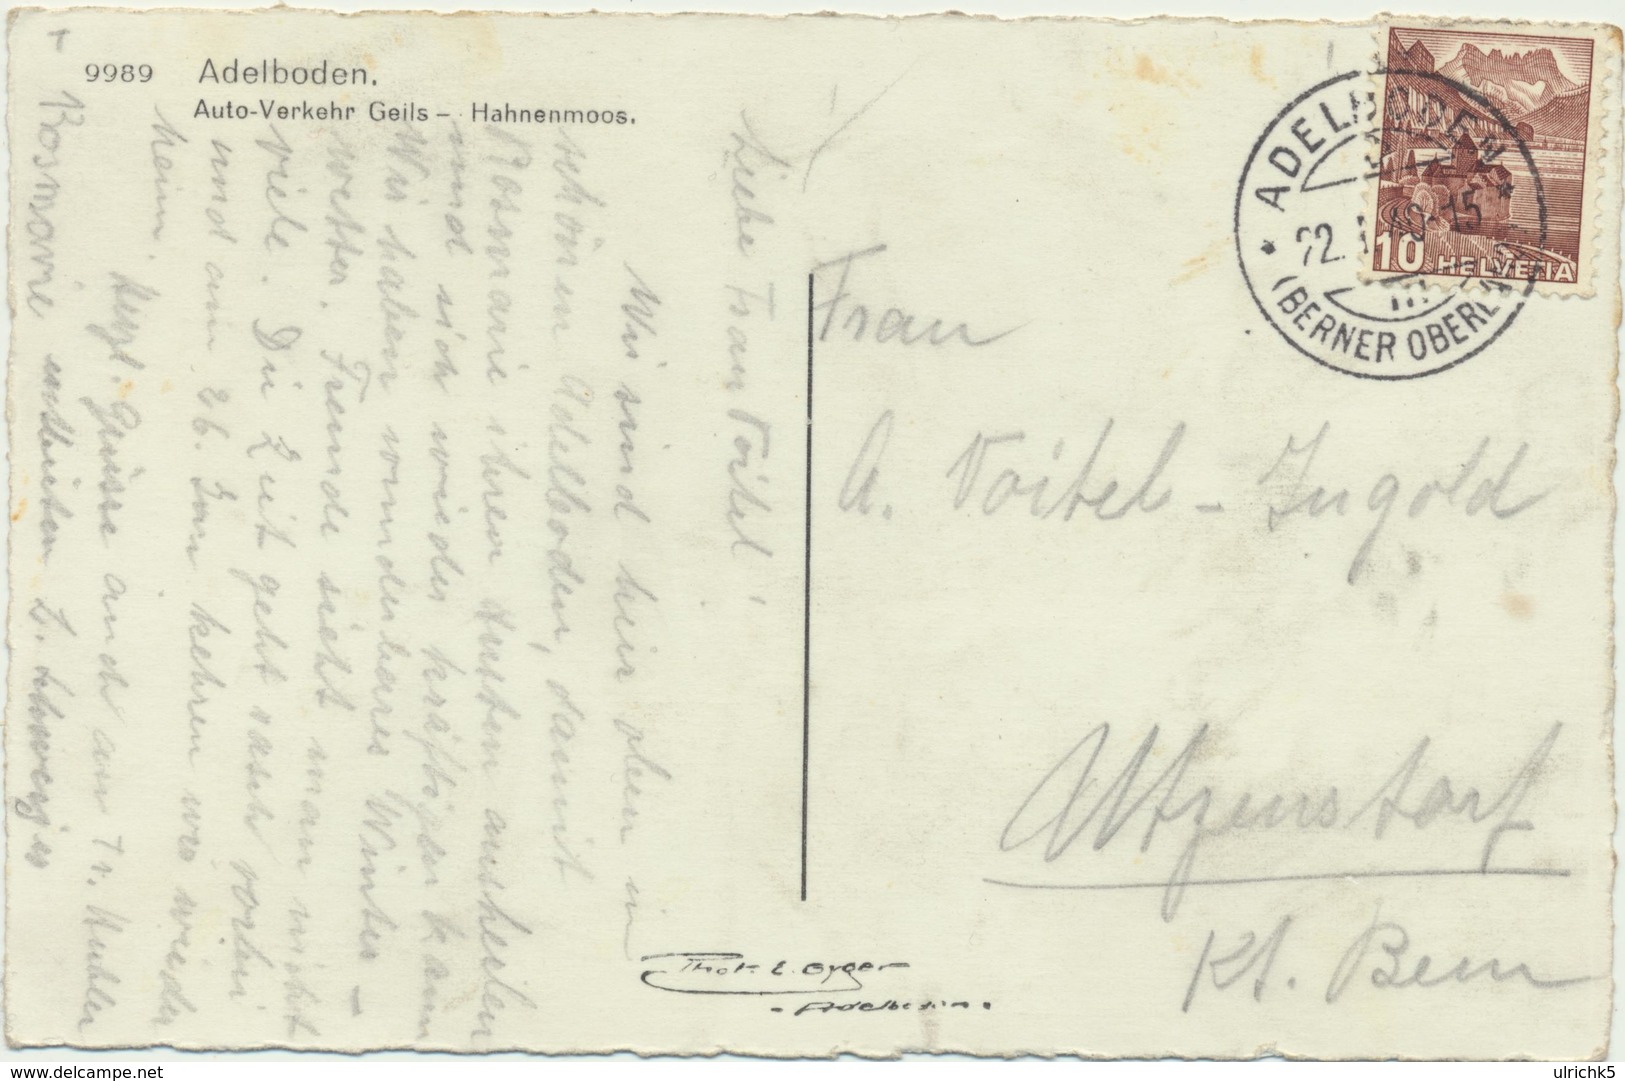 9989 Adelboden.
Auto-Verkehr Geils - Hahnenmoos.
Liebe Frau Voitel!
Wir sind hier oben in
schönen Adelboden, damit
Rosmarie ihren Husten ausheilen
und sich wieder kräftigen kann
Wir haben wunderbares Winter-
wetter. Fremde sieht man nicht
viele. Die Zeit geht rasch vorbei
und am 26. Jan kehren wir wieder
heim. Herzl. Grüsse auch an Fr.
Rosmarie
ADELBODEN
22. 40-15
(BERNER OBERLAND)
10 HELVETIA
Frau
A. Voitel - Ingold
Utzenstorf
Kt. Bern
Phot. E. Gyger
- Adelboden.
delcampe.net
ulrichk5